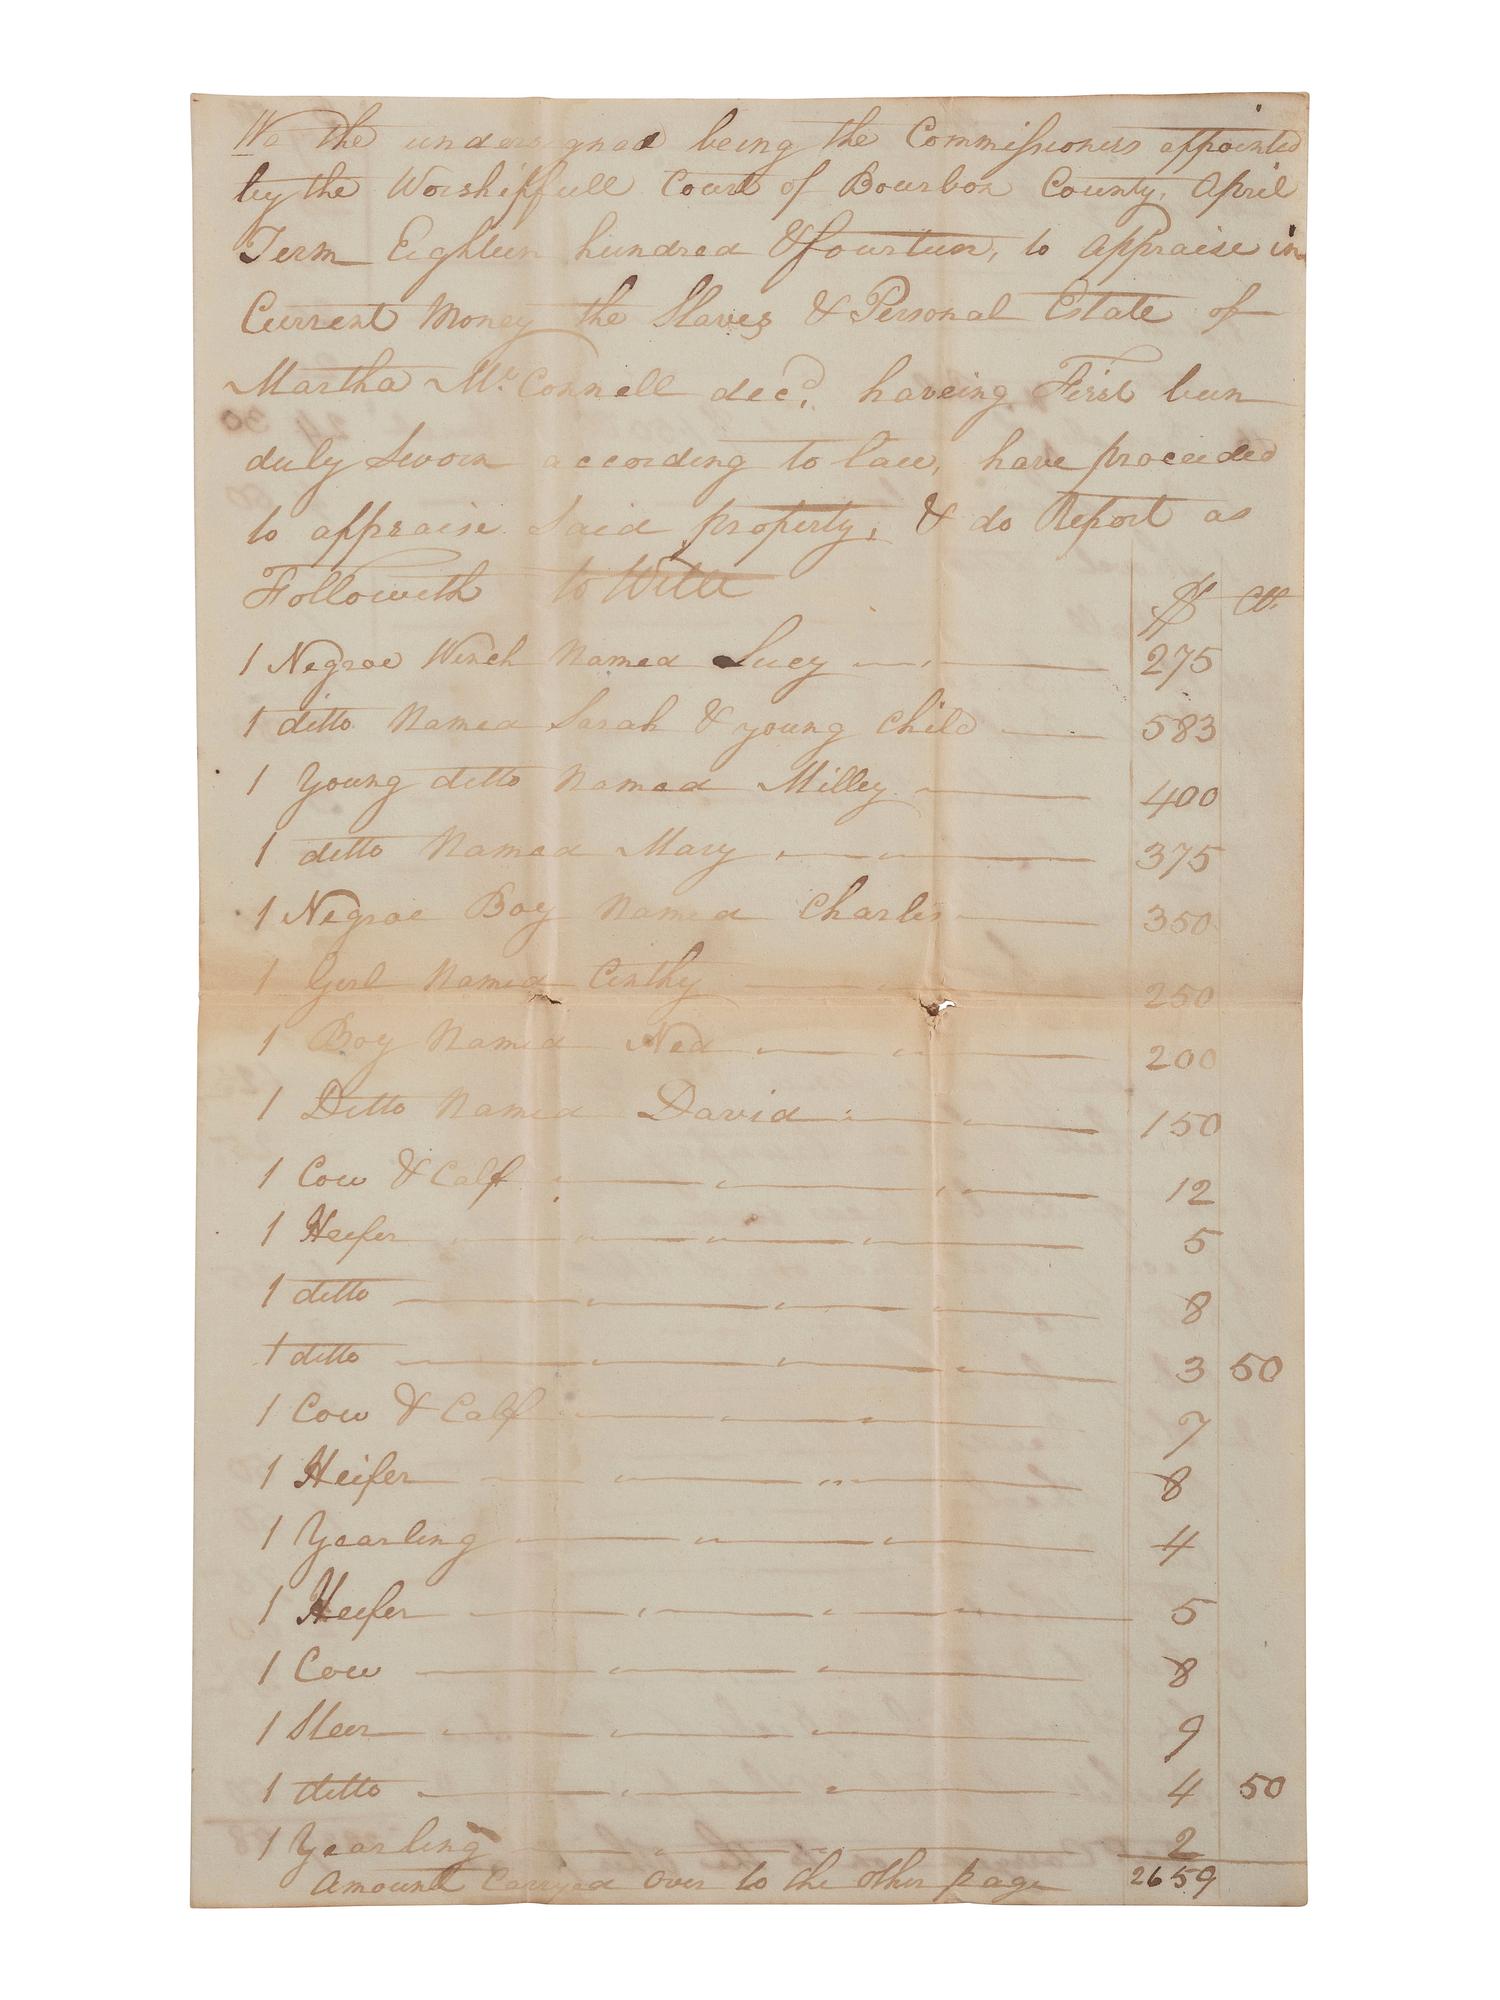 We the undersigned being the Commissioners appointed
by the Worshipfull Court of Bourbon County, April
Term Eighteen hundred & fourteen, to appraise in
Current Money the Slaves & Personal Estate of
Martha McConnell decd. haveing First been
duly Sworn according to law, have proceeded
to appraise Said property, & do Report as
Followeth to Witt
$ Cts.
1 Negroe Wench Named Lucy 275
1 ditto Named Sarah & young Child 583
1 Young ditto Named Milley 400
1 ditto Named Mary 375
1 Negroe Boy Named Charles 350
1 Girl Named Cinthy 250
1 Boy Named Ned 200
1 Ditto Named David 150
1 Cow & Calf 12
1 Heifer 5
1 ditto 8
1 ditto 3 50
1 Cow & Calf 7
1 Heifer 8
1 Yearling 4
1 Heifer 5
1 Cow 8
1 Steer 9
1 ditto 4 50
1 Yearling 2
Amount Carryed Over to the other page 2659